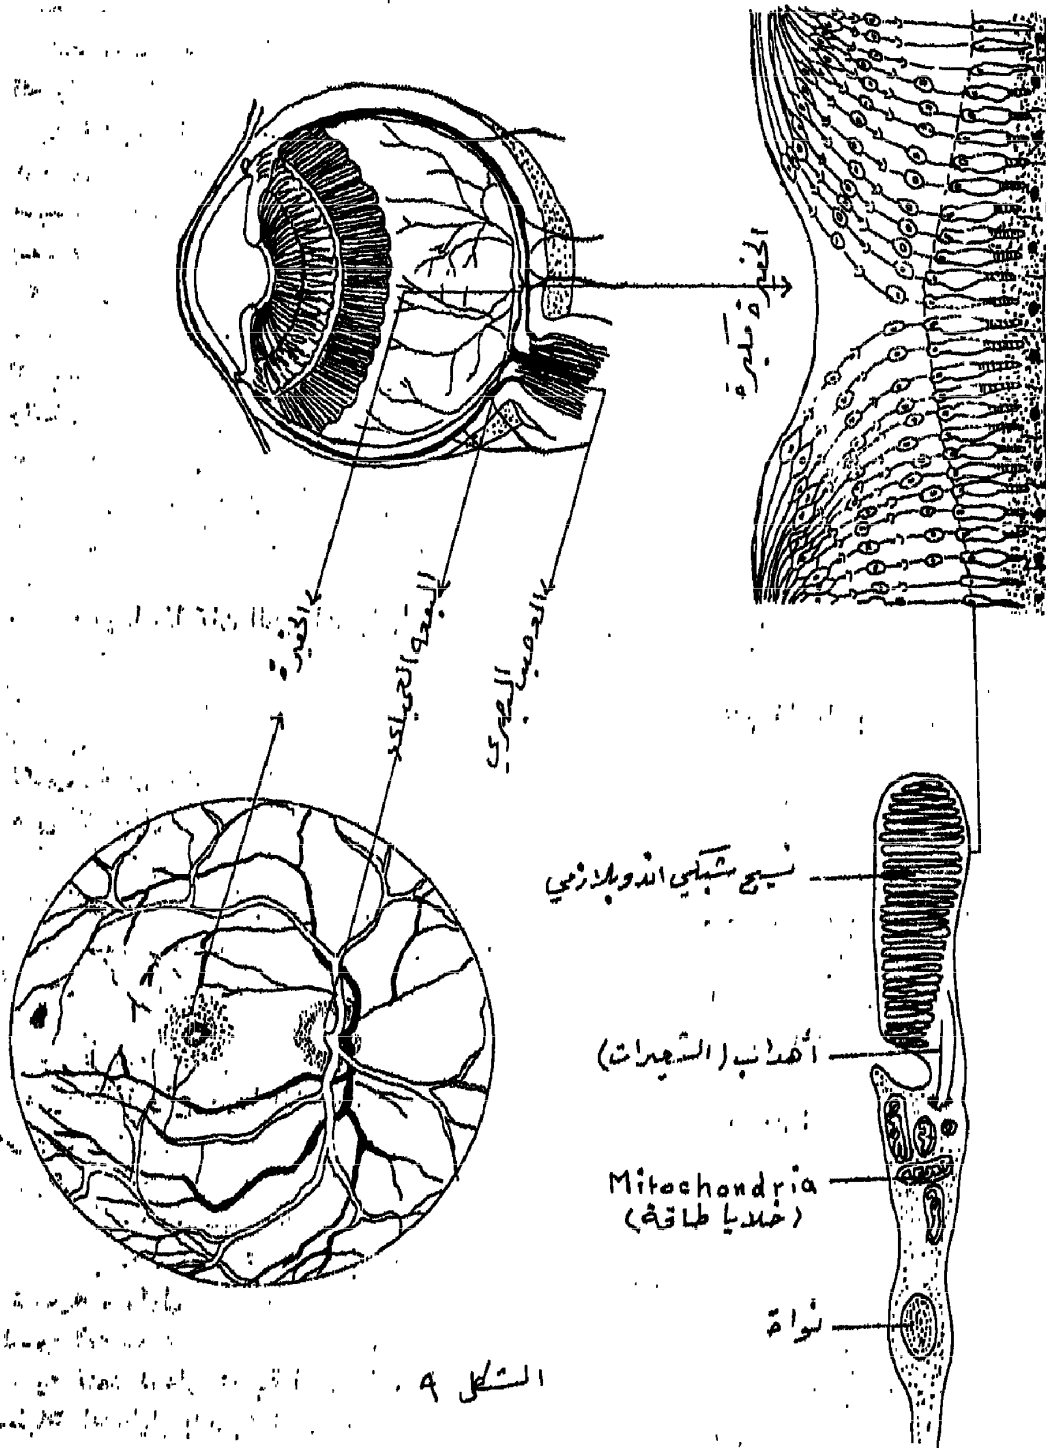 الحفيرة مكبرة
الحفيرة
البقعة العمياء
العصب البصري
نسيج شبكي اندوبلازمي
أهداب (الشعيرات)
Mitochondria
(خلايا طاقة)
نواة
الشكل ٩